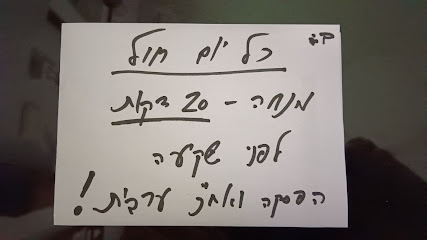 ב״ה
כל יום חול
מנחה - 20 דקות
לפני שקיעה
הפסקה ואח״כ ערבית!